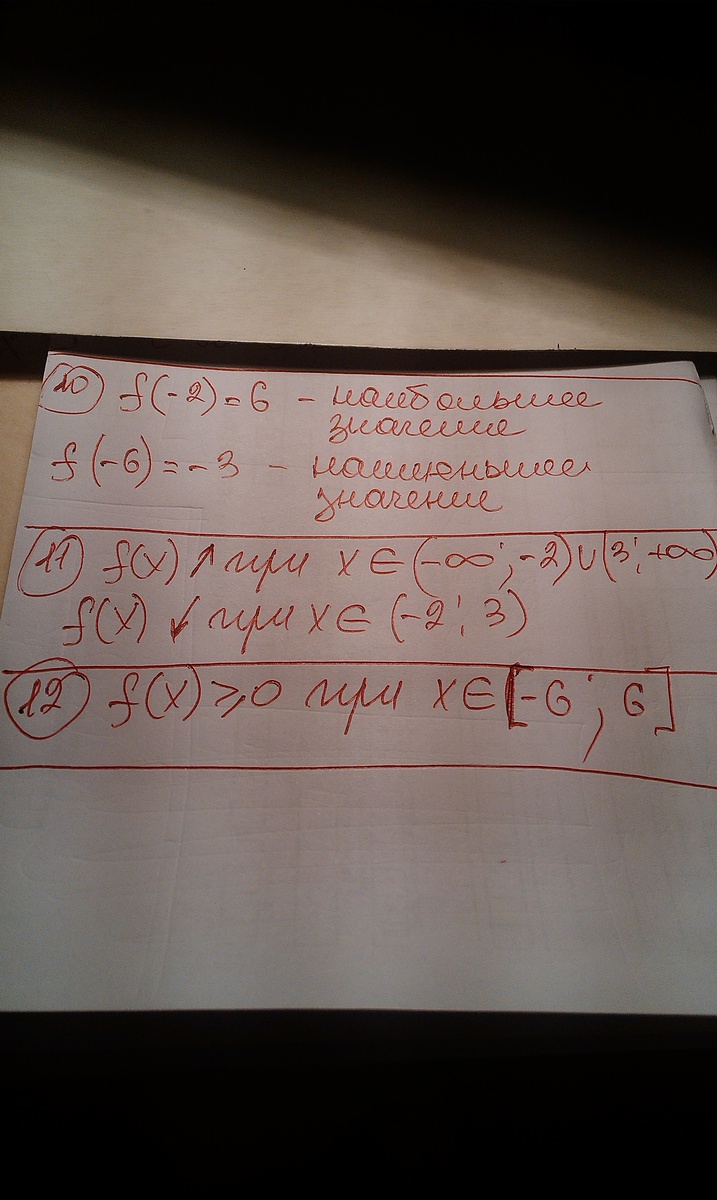 10 f(-2)=6 - наибольшее
значение
f(-6)=-3 - наименьшее
значение
11 f(x) ↗ при x∈(-∞;-2)∪(3;+∞)
f(x) ↙ при x∈(-2;3)
12 f(x)⩾0 при x∈[-6;6]